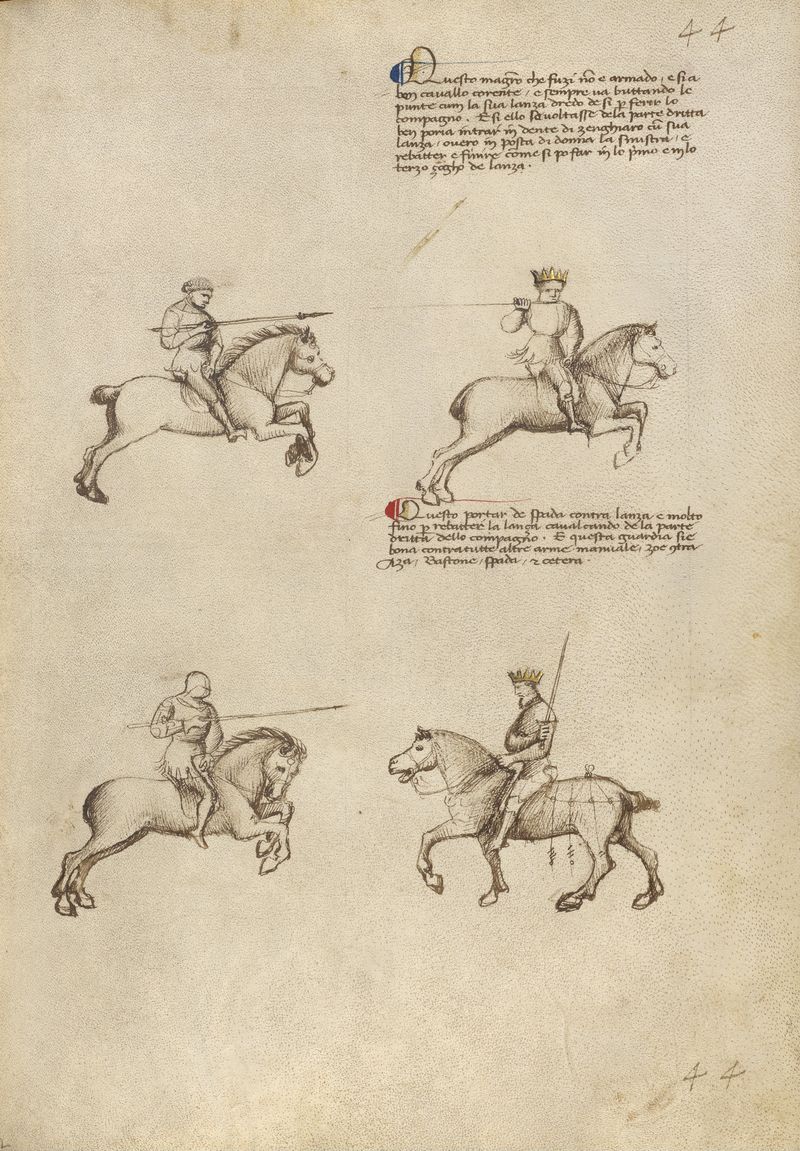 44
Questo magro che fuzi no e armado, e si a
bon cavallo corente, e sempre va buttando le
punte cum la sua lanza dredo de si p ferir lo
compagno. E si ello se voltasse dela parte dritta
ben poria intrar in dente di zenghiaro cu sua
lanza, overo in posta di donna la sinistra, e
rebatter e finire come si po far in lo primo e in lo
terzo zogho de lanza.
Questo portar de spada contra lanza e molto
fino p rebatter la lanza cavalcando de la parte
dritta dello compagno. E questa guardia sie
bona contra tutte altre arme manuale, zoe contra
Aza, Bastone, spada, & cetera.
44